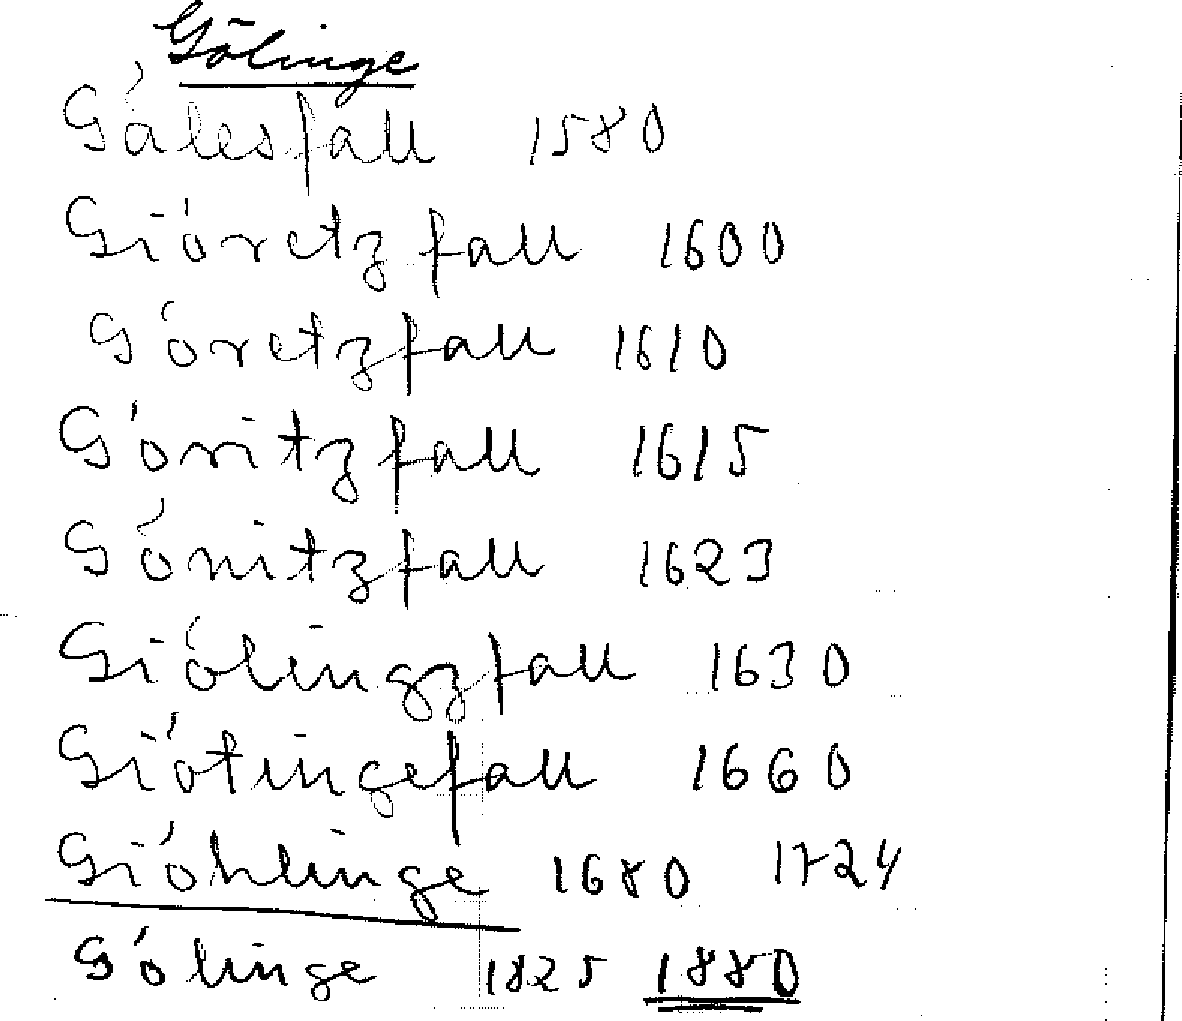 Gölinge
Gálesfall 1580
Gióretz fall 1600
Góretzfall 1610
Góritzfall 1615
Gónitzfall 1623
Giólingzfall 1630
Giótingefall 1660
Gióhlinge 1680 1724
Gólinge 1825 1880